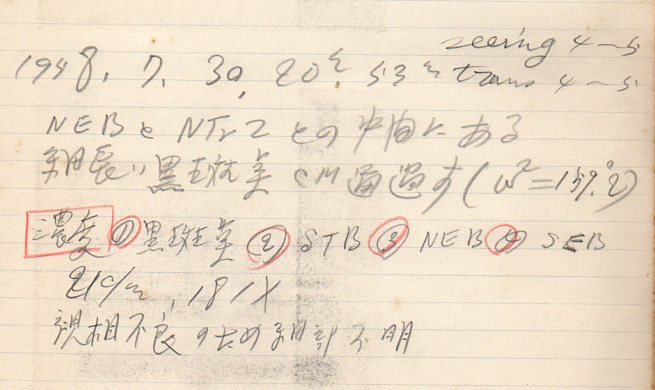 seeing 4〜5
1958. 7. 30, 20h. 53m trans 4〜5
NEBとNTrZとの中間にある
細長い黒斑点CM通過す(ω²=159.°2)
濃度 ①黒斑点 ② STB ③ NEB ④ SEB
21c/m, 181X
視相不良のため細部不明